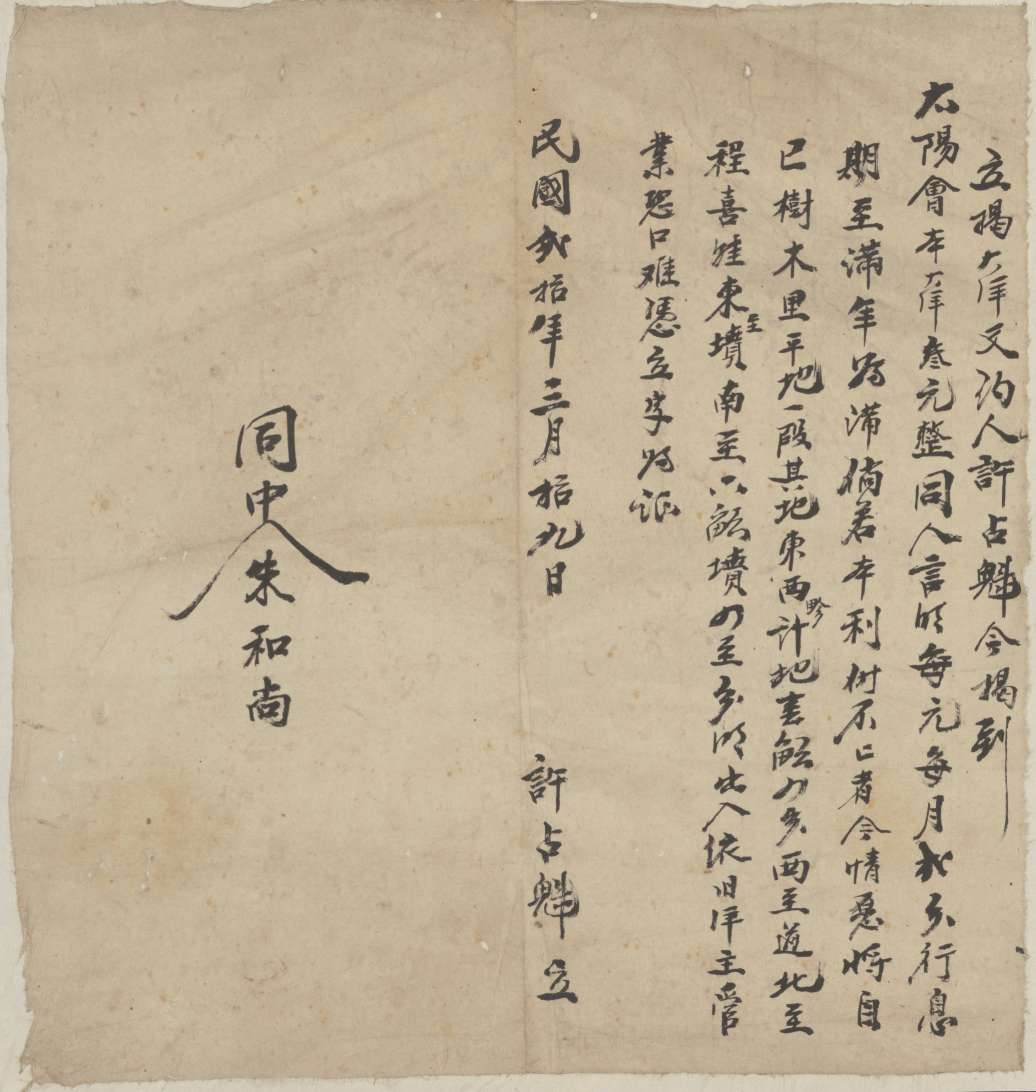 立揭大洋文約人許占魁今揭到
太陽會本大洋叁元整同人言明每元每月弍分行息
期至滿年為滿倘若本利付不上者今情愿將自
已樹木里平地一段其地東西畛計地壹畝四分西至道北至
程喜旺東至墳南至六畝墳四至分明出入依旧洋主管
業恐口难憑立字為証
民國弍拾年三月拾九日 許占魁 立
同中人朱和尚